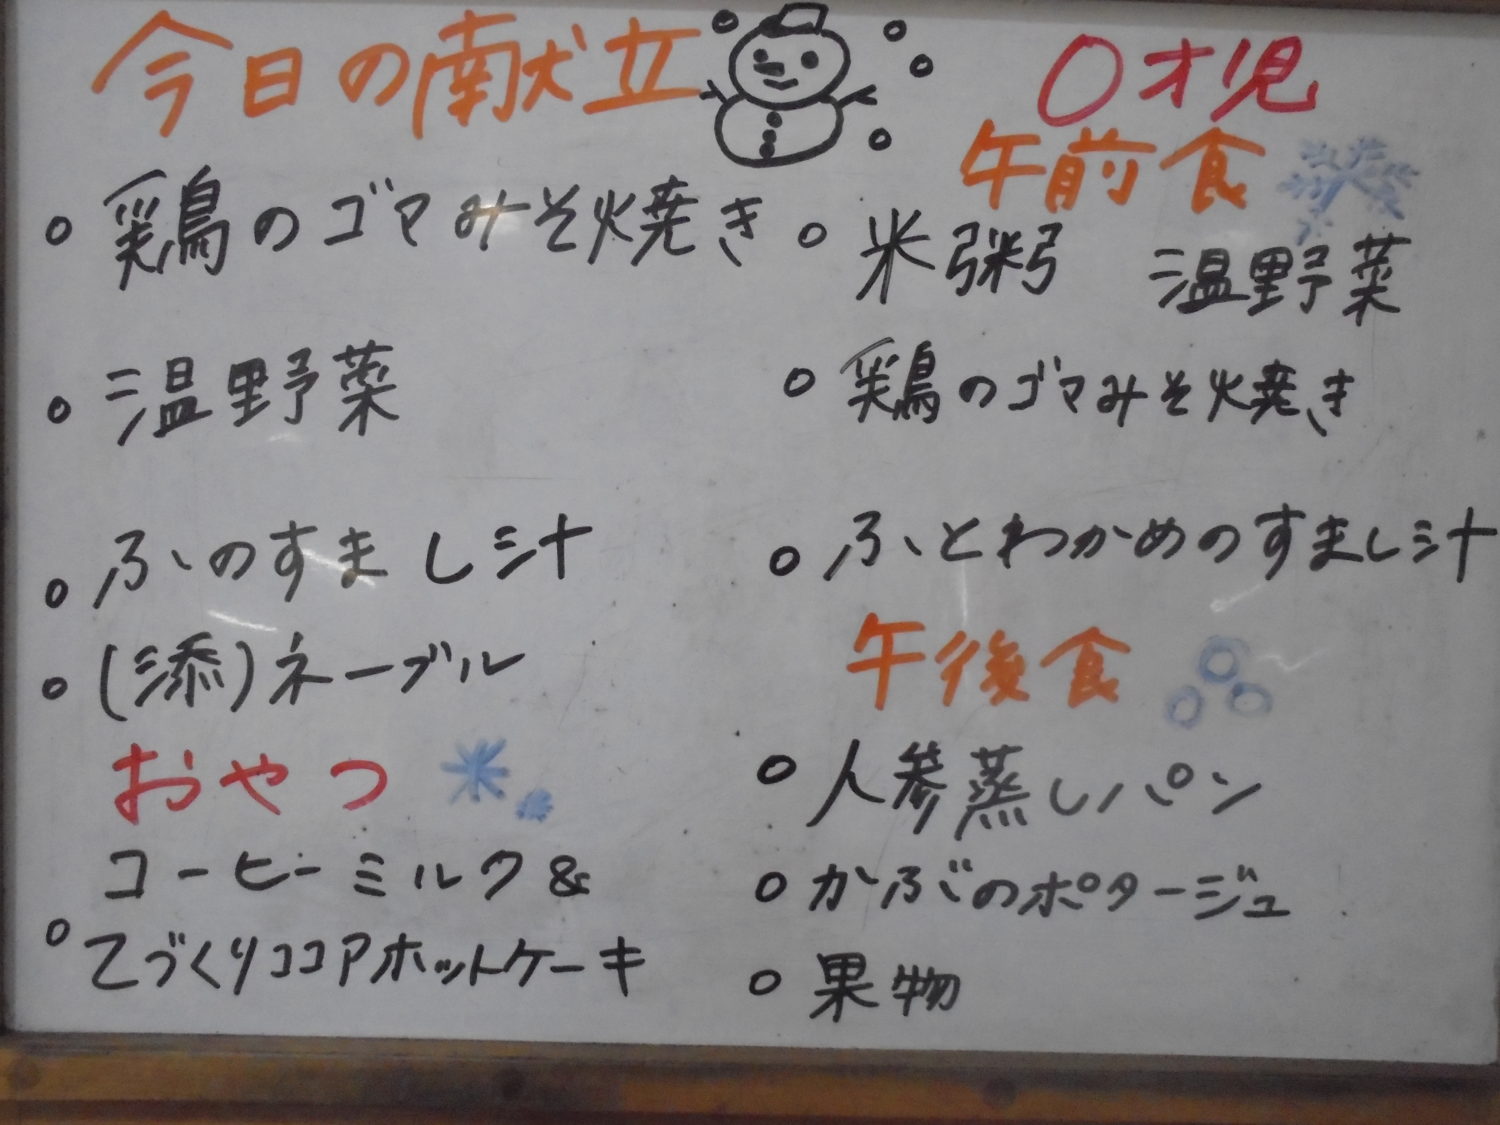 今日の献立
○ 鶏のゴマみそ焼き
○ 温野菜
○ ふのすまし汁
○ (添)ネーブル
おやつ
コーヒーミルク&
○ てづくりココアホットケーキ
0才児
午前食
○ 米粥 温野菜
○ 鶏のゴマみそ焼き
○ ふとわかめのすまし汁
午後食
○ 人参蒸しパン
○ かぶのポタージュ
○ 果物